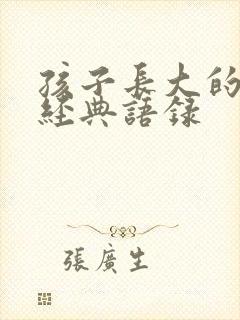 孩子長大的
經典語錄
張廣生